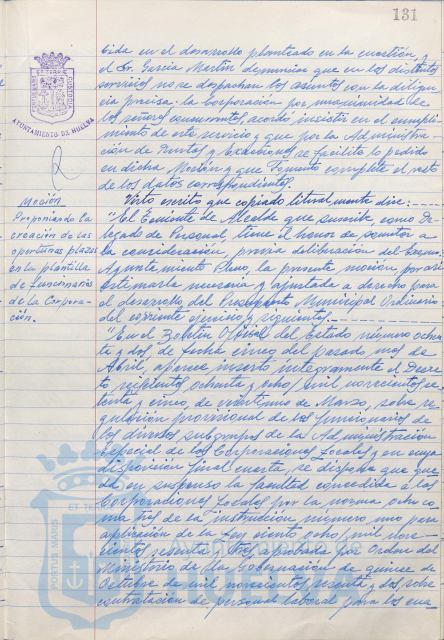 131
AYUNTAMIENTO DE HUELVA
cida en el desarrollo planteado en la cuestión, y
el Sr. García Martín denuncia que en los distintos
servicios no se despachan los asuntos con la diligen
cia precisa. la Corporación por unanimidad de
los señores concurrentes acordó insistir en el cumpli
miento de este servicio y que por la Administra
ción de Rentas y Exacciones se facilite lo pedido
en dicha Moción y que Fomento complete el resto
de los datos correspondientes.
Moción
Proponiendo la
creación de las
oportunas plazas
en la plantilla
de Funcionarios
de la Corpora-
ción.
Visto escrito que copiado literalmente dice:
"El Teniente de Alcalde que suscribe como De
legado de Personal, tiene el honor de someter a
la consideración previa deliberación del Excmo.
Ayuntamiento Pleno, la presente moción por
estimarla necesaria y ajustada a derecho para
el desarrollo del Presupuesto Municipal Ordinario
del corriente ejercicio y siguientes.
"En el Boletín Oficial del Estado número ochen
ta y dos, de fecha cinco del pasado mes de
Abril, aparece inserto íntegramente el Decre
to seiscientos ochenta y ocho, mil novecientos se
tenta y cinco, de veintiuno de Marzo, sobre re
gulación provisional de los funcionarios de
los diversos subgrupos de la Administración
Especial de las Corporaciones Locales y en cuya
disposición final cuarta, se dispone que que
de en suspenso la facultad concedida a las
Corporaciones Locales por la norma ocho co
ma tres de la instrucción número uno para
aplicación de la Ley ciento ocho, mil nove
cientos sesenta y tres, aprobada por Orden del
Ministerio de la Gobernación de quince de
Octubre de mil novecientos sesenta y dos sobre
contratación de personal laboral para los cua